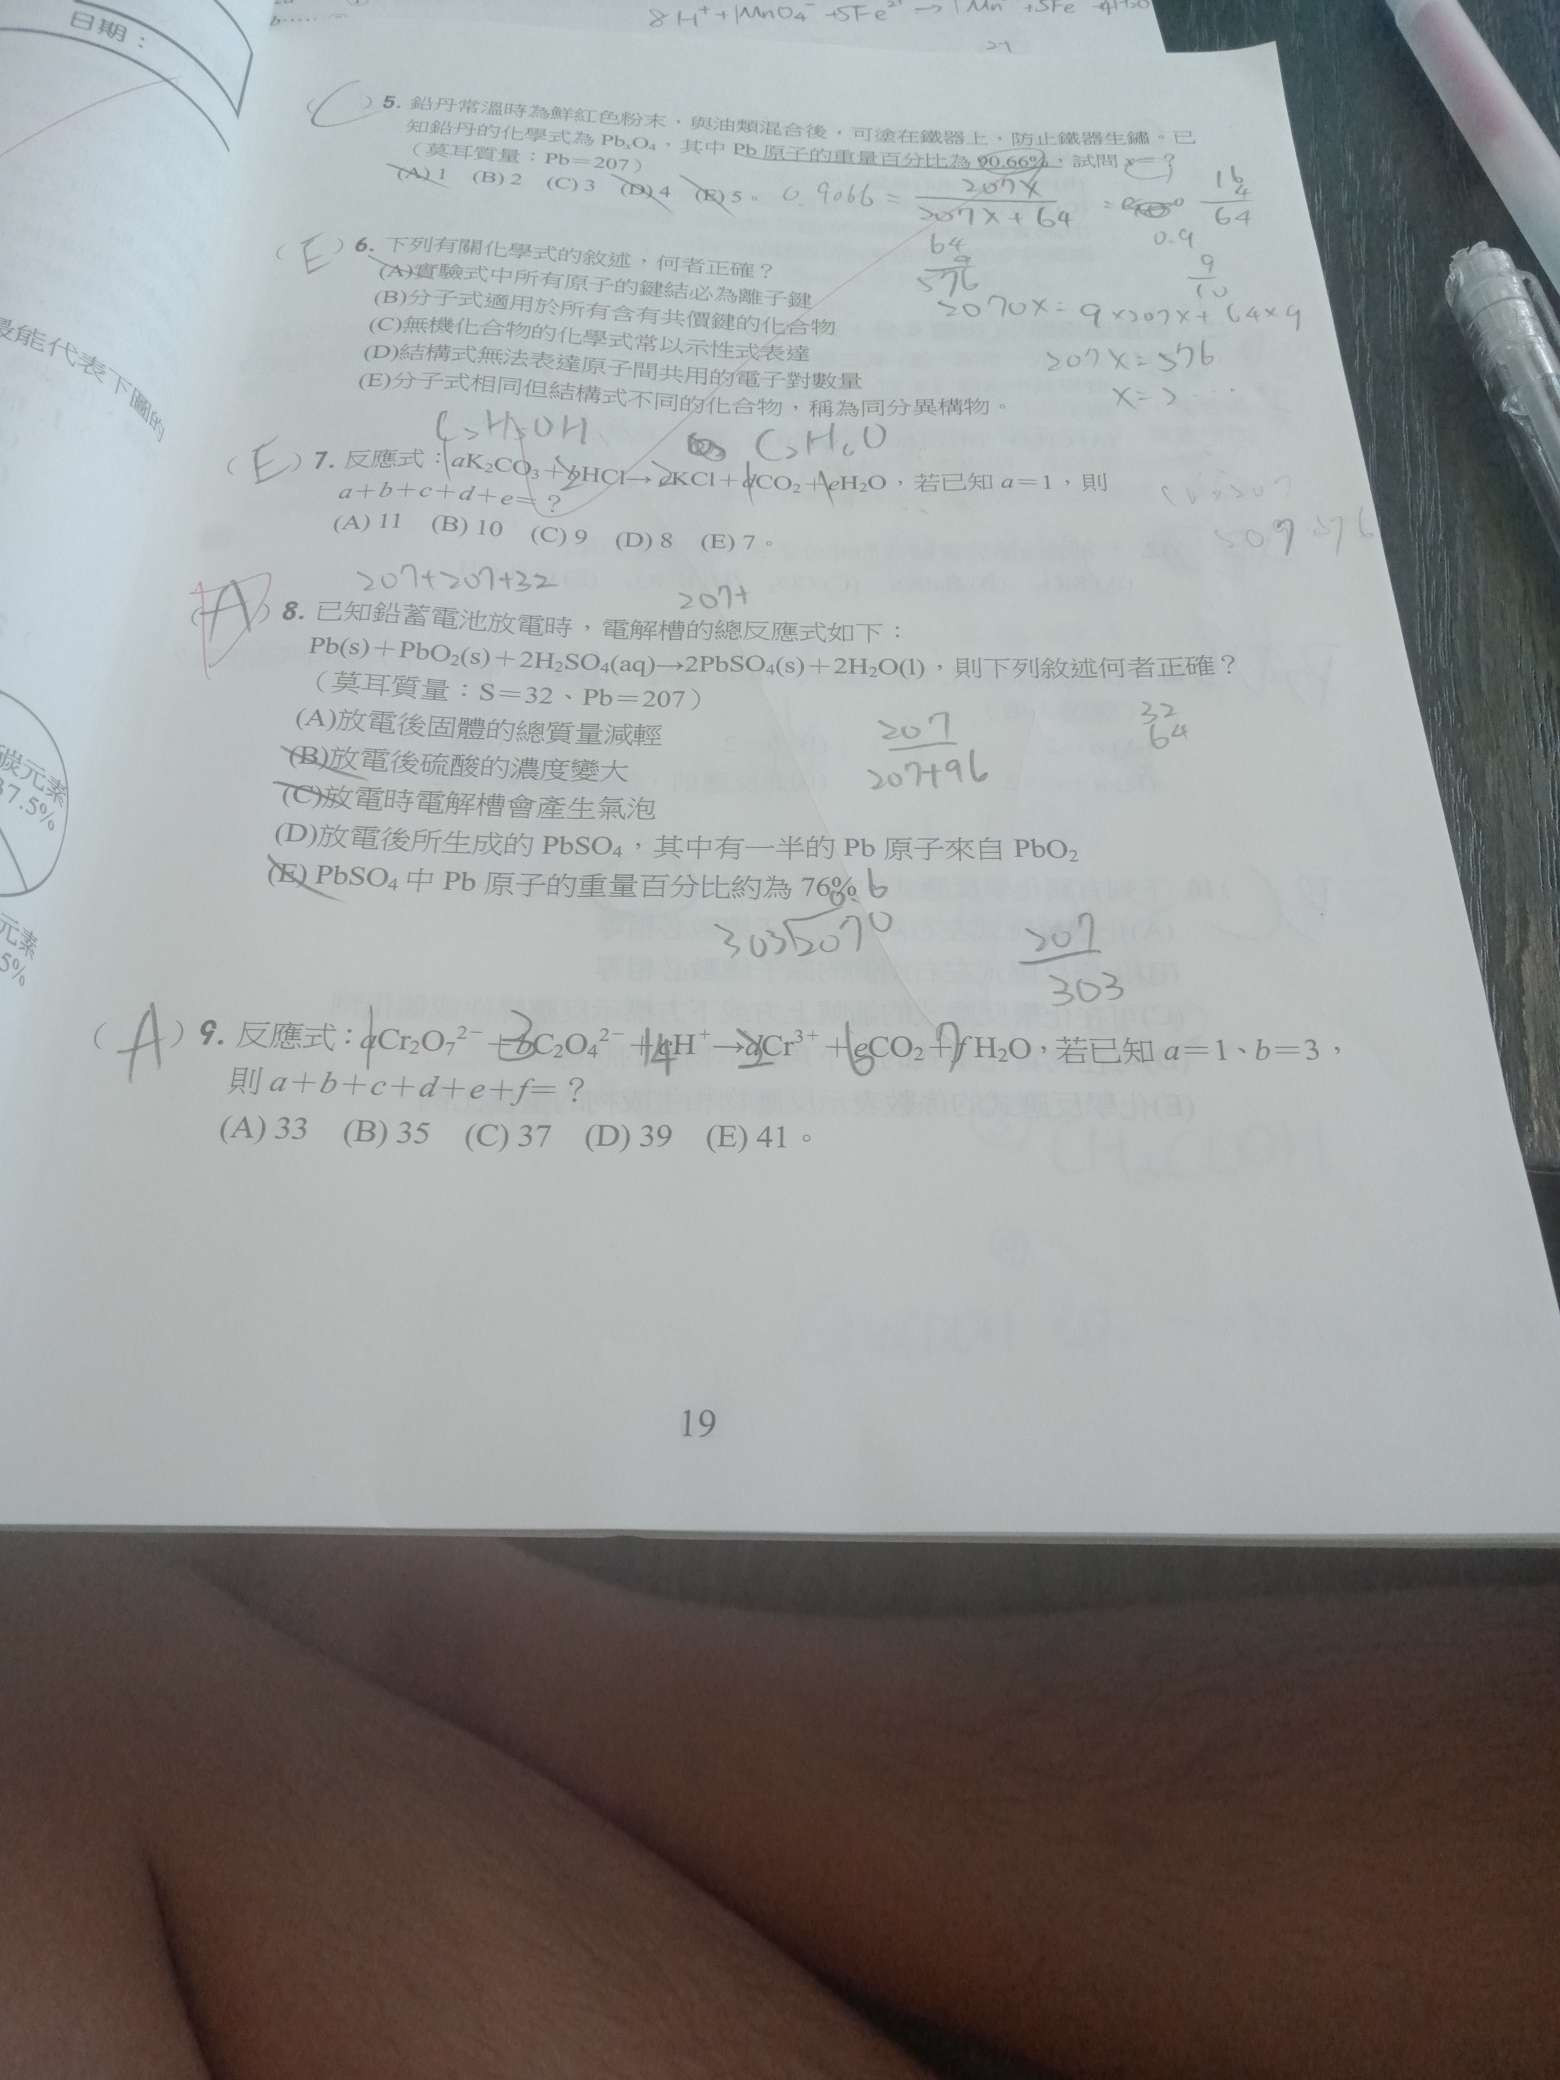 日期：
8H⁺+1MnO₄⁻+5Fe²⁺→1Mn
最能代表下圖的
碳元素
37.5%
元素
5%
(C) 5. 鉛丹常溫時為鮮紅色粉末，與油類混合後，可塗在鐵器上，防止鐵器生鏽。已
知鉛丹的化學式為 PbₓO₄，其中 Pb 原子的重量百分比為 90.66%，試問 x=？
（莫耳質量：Pb=207）
(A) 1 (B) 2 (C) 3 (D) 4 (E) 5。
0.9066 = 207X / 207X+64
16
4
64
0.9
64
9
576
9
10
2070X = 9×207X+64×9
207X=576
(E) 6. 下列有關化學式的敘述，何者正確？
(A)實驗式中所有原子的鍵結必為離子鍵
(B)分子式適用於所有含有共價鍵的化合物
(C)無機化合物的化學式常以示性式表達
(D)結構式無法表達原子間共用的電子對數量
(E)分子式相同但結構式不同的化合物，稱為同分異構物。
C₂H₅OH C₂H₆O
(E) 7. 反應式：aK₂CO₃+bHCl→cKCl+dCO₂+eH₂O，若已知 a=1，則
a+b+c+d+e=？
(A) 11 (B) 10 (C) 9 (D) 8 (E) 7。
207+207+32
207+
(A) 8. 已知鉛蓄電池放電時，電解槽的總反應式如下：
Pb(s)+PbO₂(s)+2H₂SO₄(aq)→2PbSO₄(s)+2H₂O(l)，則下列敘述何者正確？
（莫耳質量：S=32、Pb=207）
(A)放電後固體的總質量減輕
(B)放電後硫酸的濃度變大
(C)放電時電解槽會產生氣泡
(D)放電後所生成的 PbSO₄，其中有一半的 Pb 原子來自 PbO₂
(E) PbSO₄ 中 Pb 原子的重量百分比約為 76%
207
207+96
32
64
0.6
303 2070
207
303
(A) 9. 反應式：aCr₂O₇²⁻+bC₂O₄²⁻+cH⁺→dCr³⁺+eCO₂+fH₂O，若已知 a=1、b=3，
1 3 14 2 6 7
則 a+b+c+d+e+f=？
(A) 33 (B) 35 (C) 37 (D) 39 (E) 41。
19